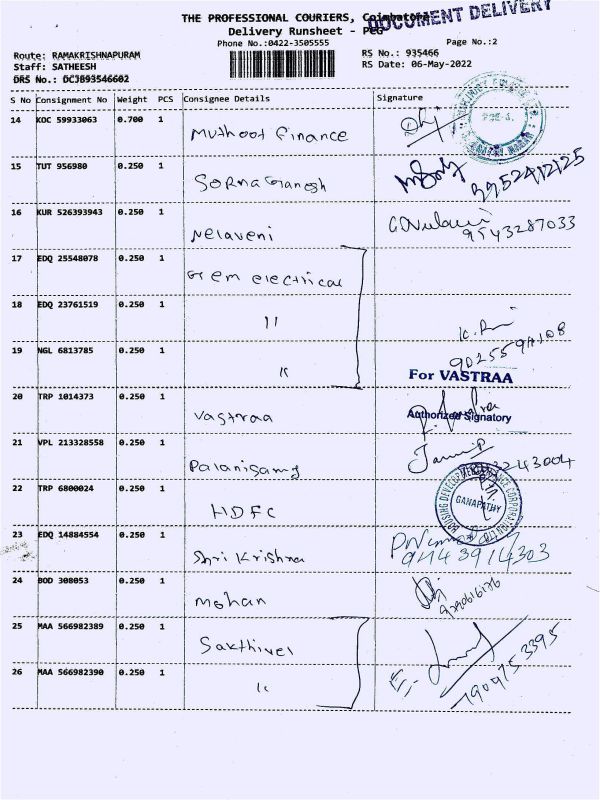 THE PROFESSIONAL COURIERS, Coimbatore
DOCUMENT DELIVERY
Delivery Runsheet - PEG
Phone No.:0422-3505555
Page No.:2
Route: RAMAKRISHNAPURAM
RS No.: 935466
Staff: SATHEESH
RS Date: 06-May-2022
DRS No.: DCJB93546602
S No Consignment No Weight PCS Consignee Details Signature
14 KOC 59933063 0.700 1 Muthoot Finance
15 TUT 956980 0.250 1 Sorna Ganesh
9952412125
16 KUR 526393943 0.250 1 Nelaveni
9543287033
17 EDQ 25548078 0.250 1 Gem electrical
18 EDQ 23761519 0.250 1 11
19 NGL 6813785 0.250 1 11
For VASTRAA
20 TRP 1014373 0.250 1 Vastraa
Authorized Signatory
21 VPL 213328558 0.250 1 Palanisamy
22 TRP 6800024 0.250 1 HDFC
HOUSING DEVELOPMENT FINANCE CORPORATION LTD
GANAPATHY
23 EDQ 14884554 0.250 1 Shri Krishna
9443914303
24 BOD 308053 0.250 1 Mohan
25 MAA 566982389 0.250 1 Sakthivel
26 MAA 566982390 0.250 1 11
7909753395